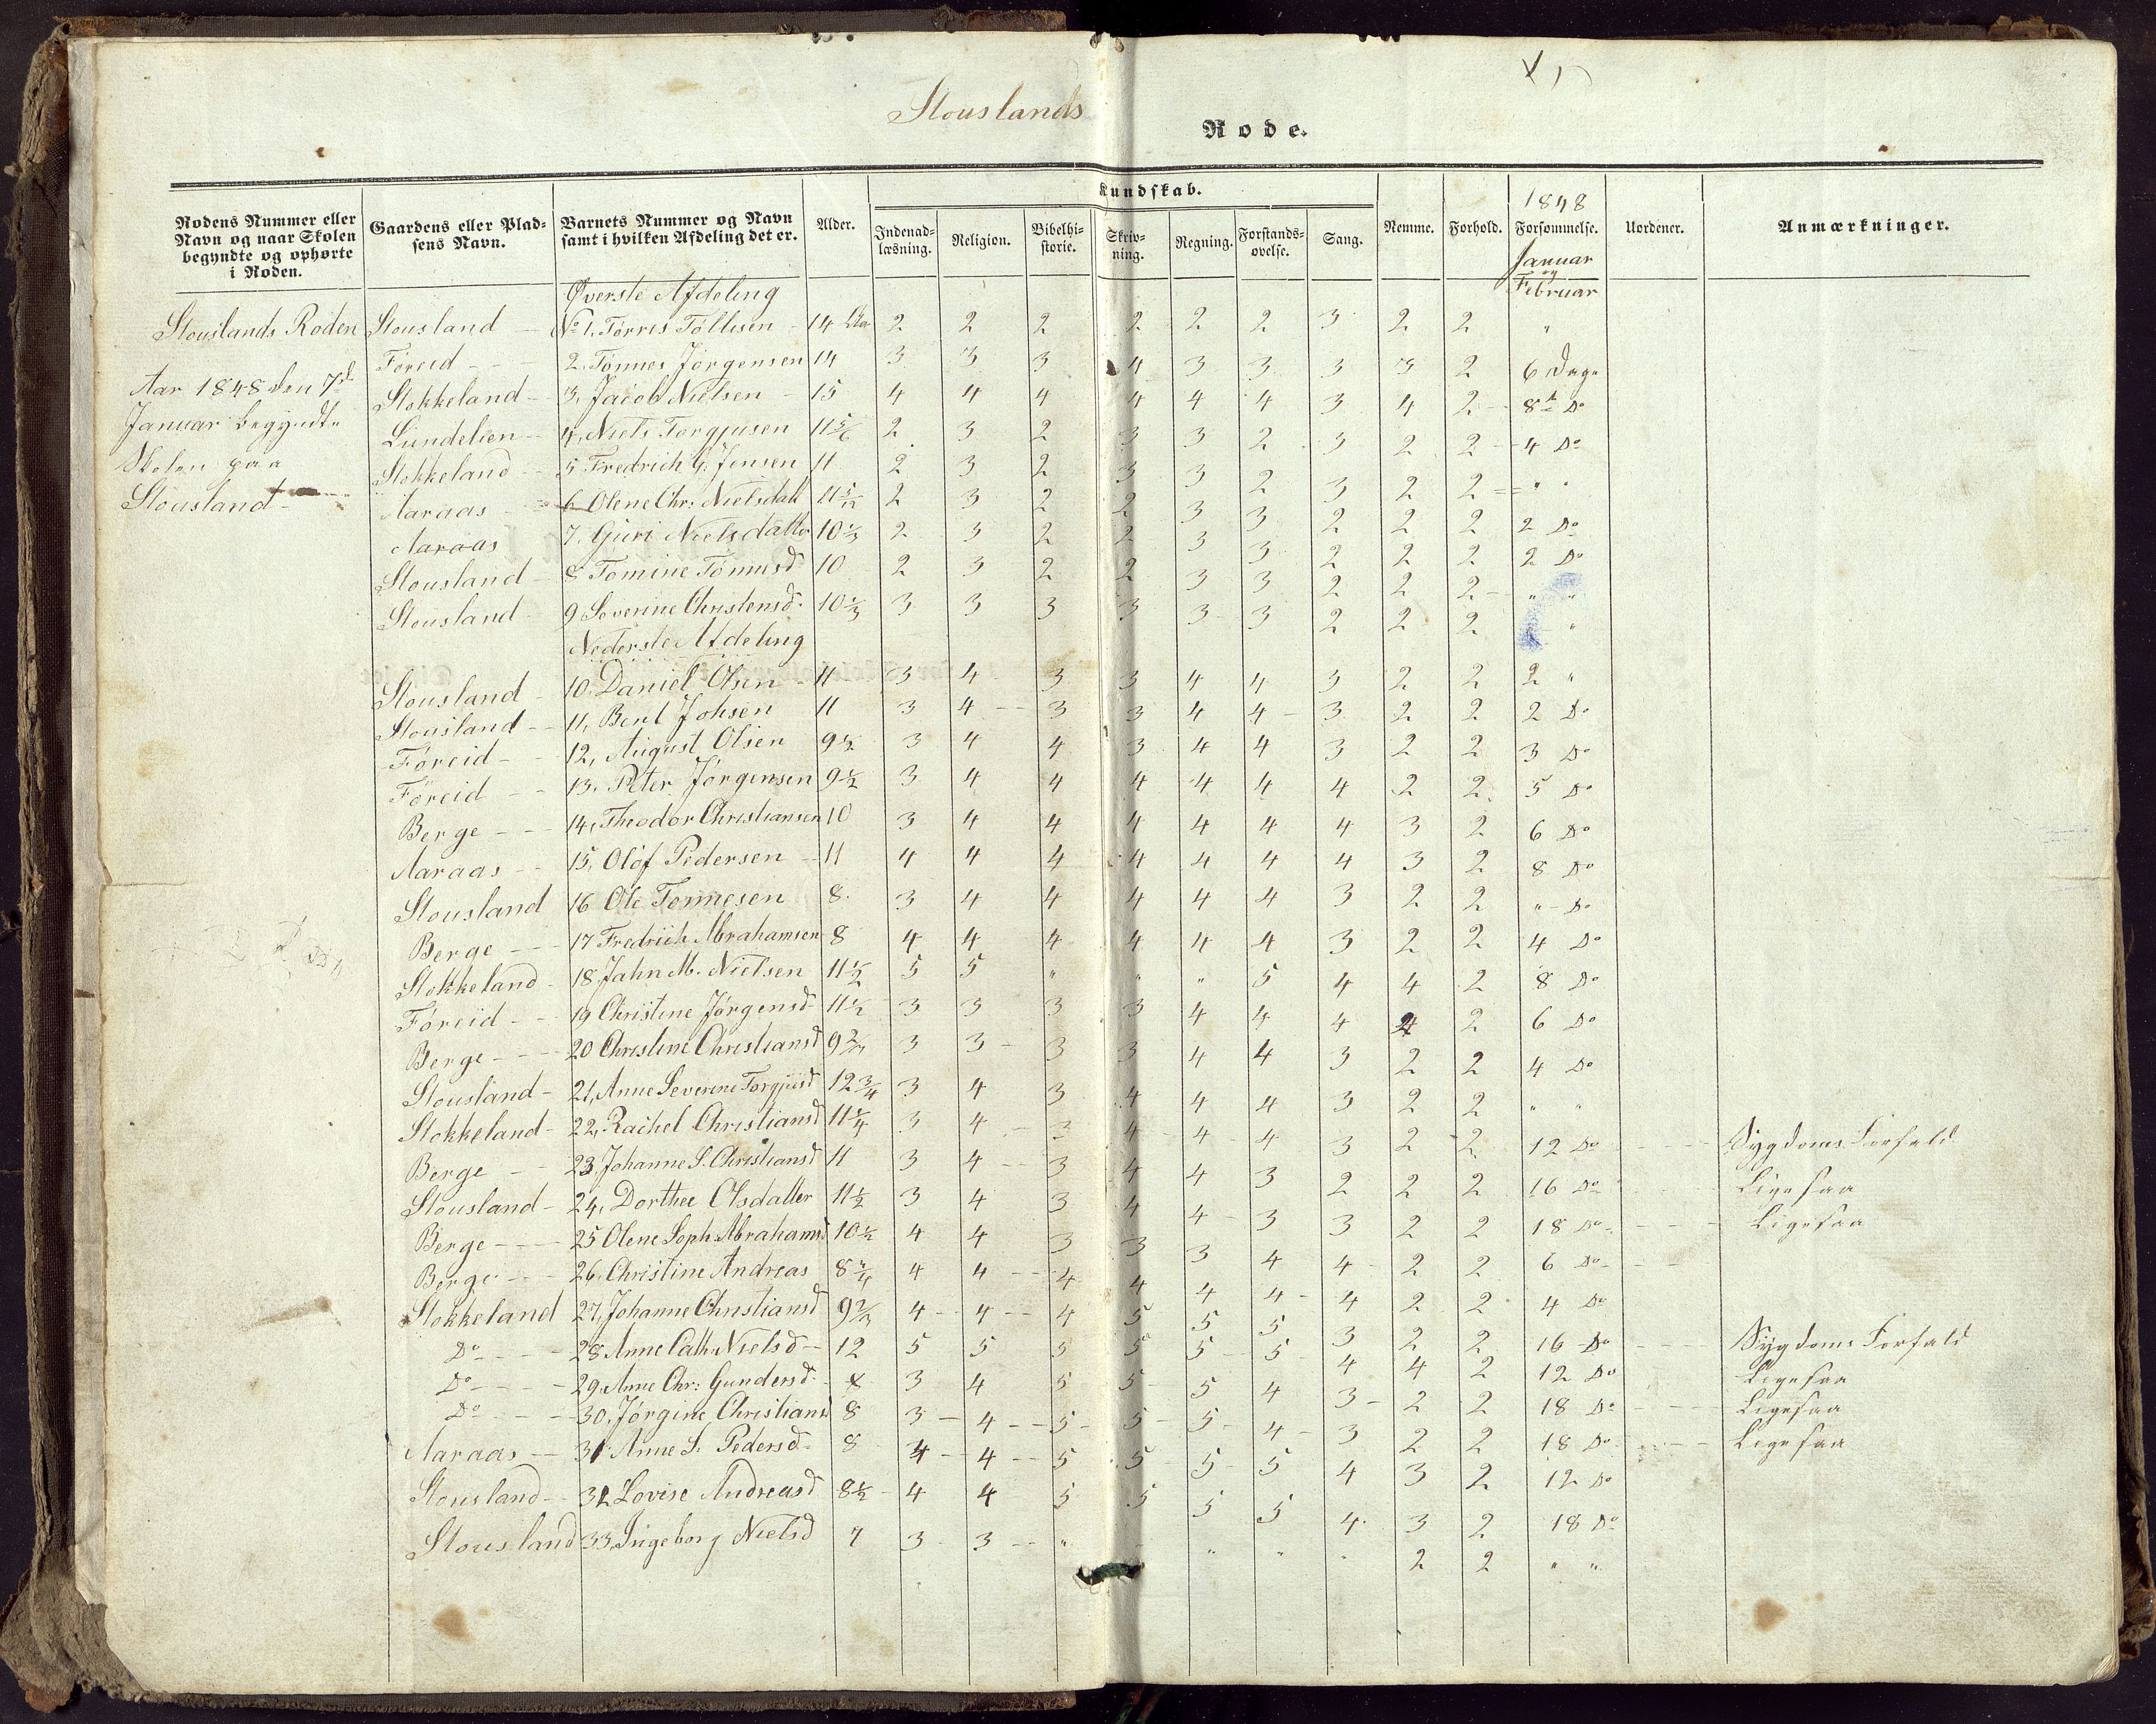 Slouslands Rode.
Rodens Nummer eller Navn og naar Skolen begyndte og ophørte i Roden.
Gaardens eller Pladsens Navn.
Barnets Nummer og Navn samt i hvilken Afdeling det er.
Alder.
Kundskab.
Indenadlæsning.
Religion.
Bibelhistorie.
Skrivning.
Regning.
Forstandsøvelse.
Sang.
Nemme.
Forhold.
1848
Forsømmelse.
Januar og Februar
Uordener.
Anmærkninger.
Slouslands Roden
Aar 1848 den 7d
Januar begyndte
Skolen paa
Slousland
Øverste Afdeling
Slousland No 1. Tørres Tøllesen 14 2 2 2 2 2 2 3 2 2 "
Føreid 2. Tønnes Jørgensen 14 3 3 3 4 3 3 3 3 2 6 Dage
Stokkeland 3, Jacob Nielsen 15 4 4 4 4 4 4 3 4 2 8 Do
Lundelien 4, Niels Torgjusen 11 5/6 2 3 2 3 3 2 3 2 2 4 Do
Stokkeland 5 Fredrich G. Jensen 11 2 3 2 3 3 2 3 2 2 " "
Aaraas 6 Olene Chr: Nielsdatt 11 5/12 2 3 2 2 3 3 2 2 2 2 Do
Aaraas 7. Guri Nielsdatter 10 1/3 2 3 2 2 3 3 2 2 2 2 Do
Slousland 8 Tomine Tønnesd 10 2 3 2 2 3 3 2 2 2 " "
Slousland 9 Severine Christensd. 10 1/3 3 3 3 3 3 3 2 2 2 "
Nederste Afdeling
Slousland 10. Daniel Olsen 11 3 4 3 3 4 4 3 2 2 2 "
Slousland 11, Bent Johsen 11 3 4 3 3 4 4 3 2 2 2 Do
Føreid 12, August Olsen 9 1/2 3 4 4 3 4 4 3 2 2 3 Do
Føreid 13, Peter Jørgensen 9 1/2 3 4 4 4 4 4 4 2 2 5 Do
Berge 14, Theodor Christiansen 10 3 4 4 4 4 4 4 3 2 6 Do
Aaraas 15, Olof Pedersen 11 4 4 4 4 4 4 4 3 2 8 Do
Slousland 16 Ole Tønnesen 8. 3 4 4 4 4 4 3 2 2 " Do
Berge 17 Fredrich Abrahamsen 8 4 4 4 4 4 4 3 2 2 4 Do
Stokkeland 18. Jahn M. Nielsen 11 1/2 5 5 " " " 5 4 4 2 8 Do
Føreid 19 Christine Jørgensd 11 1/2 3 3 3 3 4 4 4 2 6 Do
Berge 20 Christine Christiansd 9 3 3 3 3 4 4 3 2 2 4 Do
Slousland 21, Anne Severine Torgjusd 12 3/4 3 4 3 4 4 4 3 2 2 " "
Stokkeland 22, Rachel Christiansd 11 1/4 3 4 3 4 4 4 3 2 2 12 Do Sygdoms Forfald
Berge 23. Johanne S. Christiansd 11 3 4 3 4 4 3 2 2 2 16 Do Ligesaa
Slousland 24, Dorthee Olsdatter 11 1/2 3 4 3 4 4 3 3 2 2 18 Do Ligesaa
Berge 25 Olene Soph. Abrahamsd 10 1/2 4 4 3 3 3 4 4 2 2 6 Do
Berge 26. Christine Andreas 8 4 4 4 4 4 4 4 2 2 4 Do
Stokkeland 27, Johanne Christiansd 9 2/3 4 4 4 5 5 5 3 2 2 16 Do Sygdoms Forfald
Do 28 Anne Cath Nielsd 12 5 5 5 5 5 5 4 4 2 12 Do Ligesaa
Do 29. Anne Chr: Gundersd 3 4 5 5 5 4 3 2 2 18 Do Ligesaa
Do 30. Jørgine Christiansd 8 3 4 5 5 5 4 3 2 2 18 Do Ligesaa
Aaraas 31 Anne S. Pedersd. 8 4 4 5 5 5 5 4 3 2 12 Do
Slousland 32 Lovise Andreasd 8 1/2 4 4 5 5 5 5 4 3 2 18 Do
Slousland 33, Ingeborg Nielsd 7 3 3 " " " " 2 2 " "